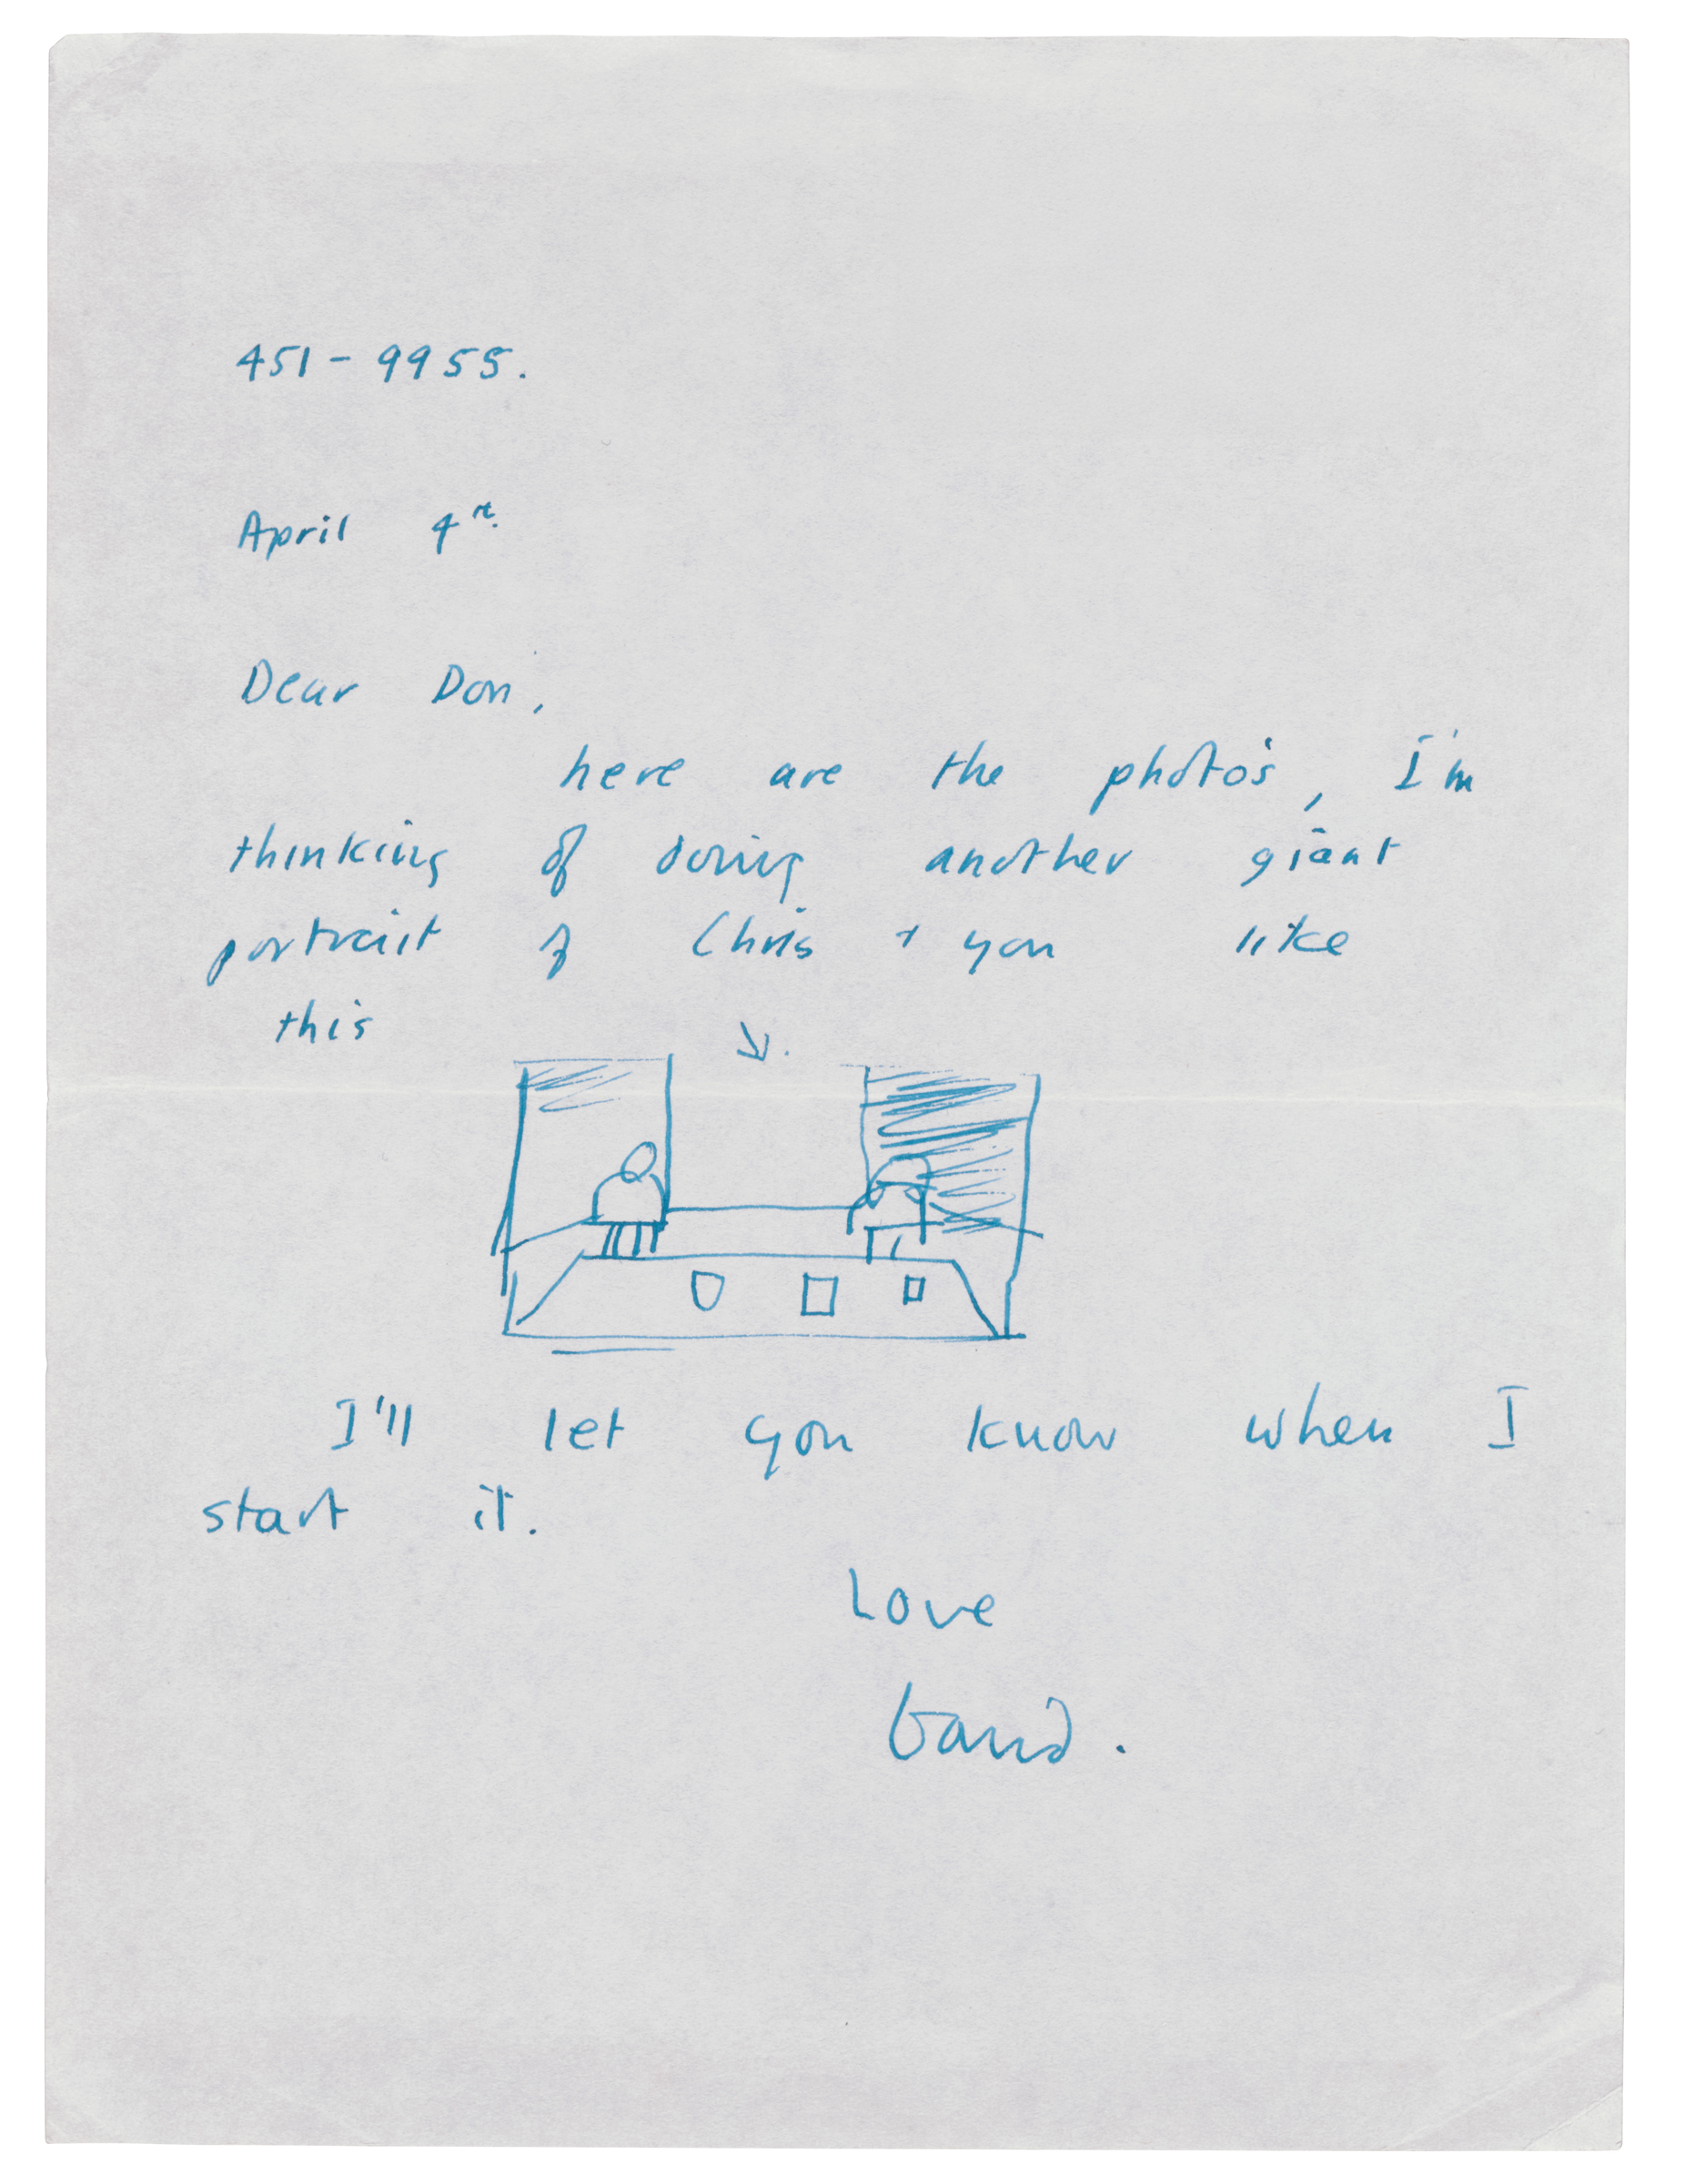 451-9955.
April 4th.
Dear Don,
here are the photo's, I'm
thinking of doing another giant
portrait of Chris + you like
this
I'll let you know when I
start it.
Love
David.